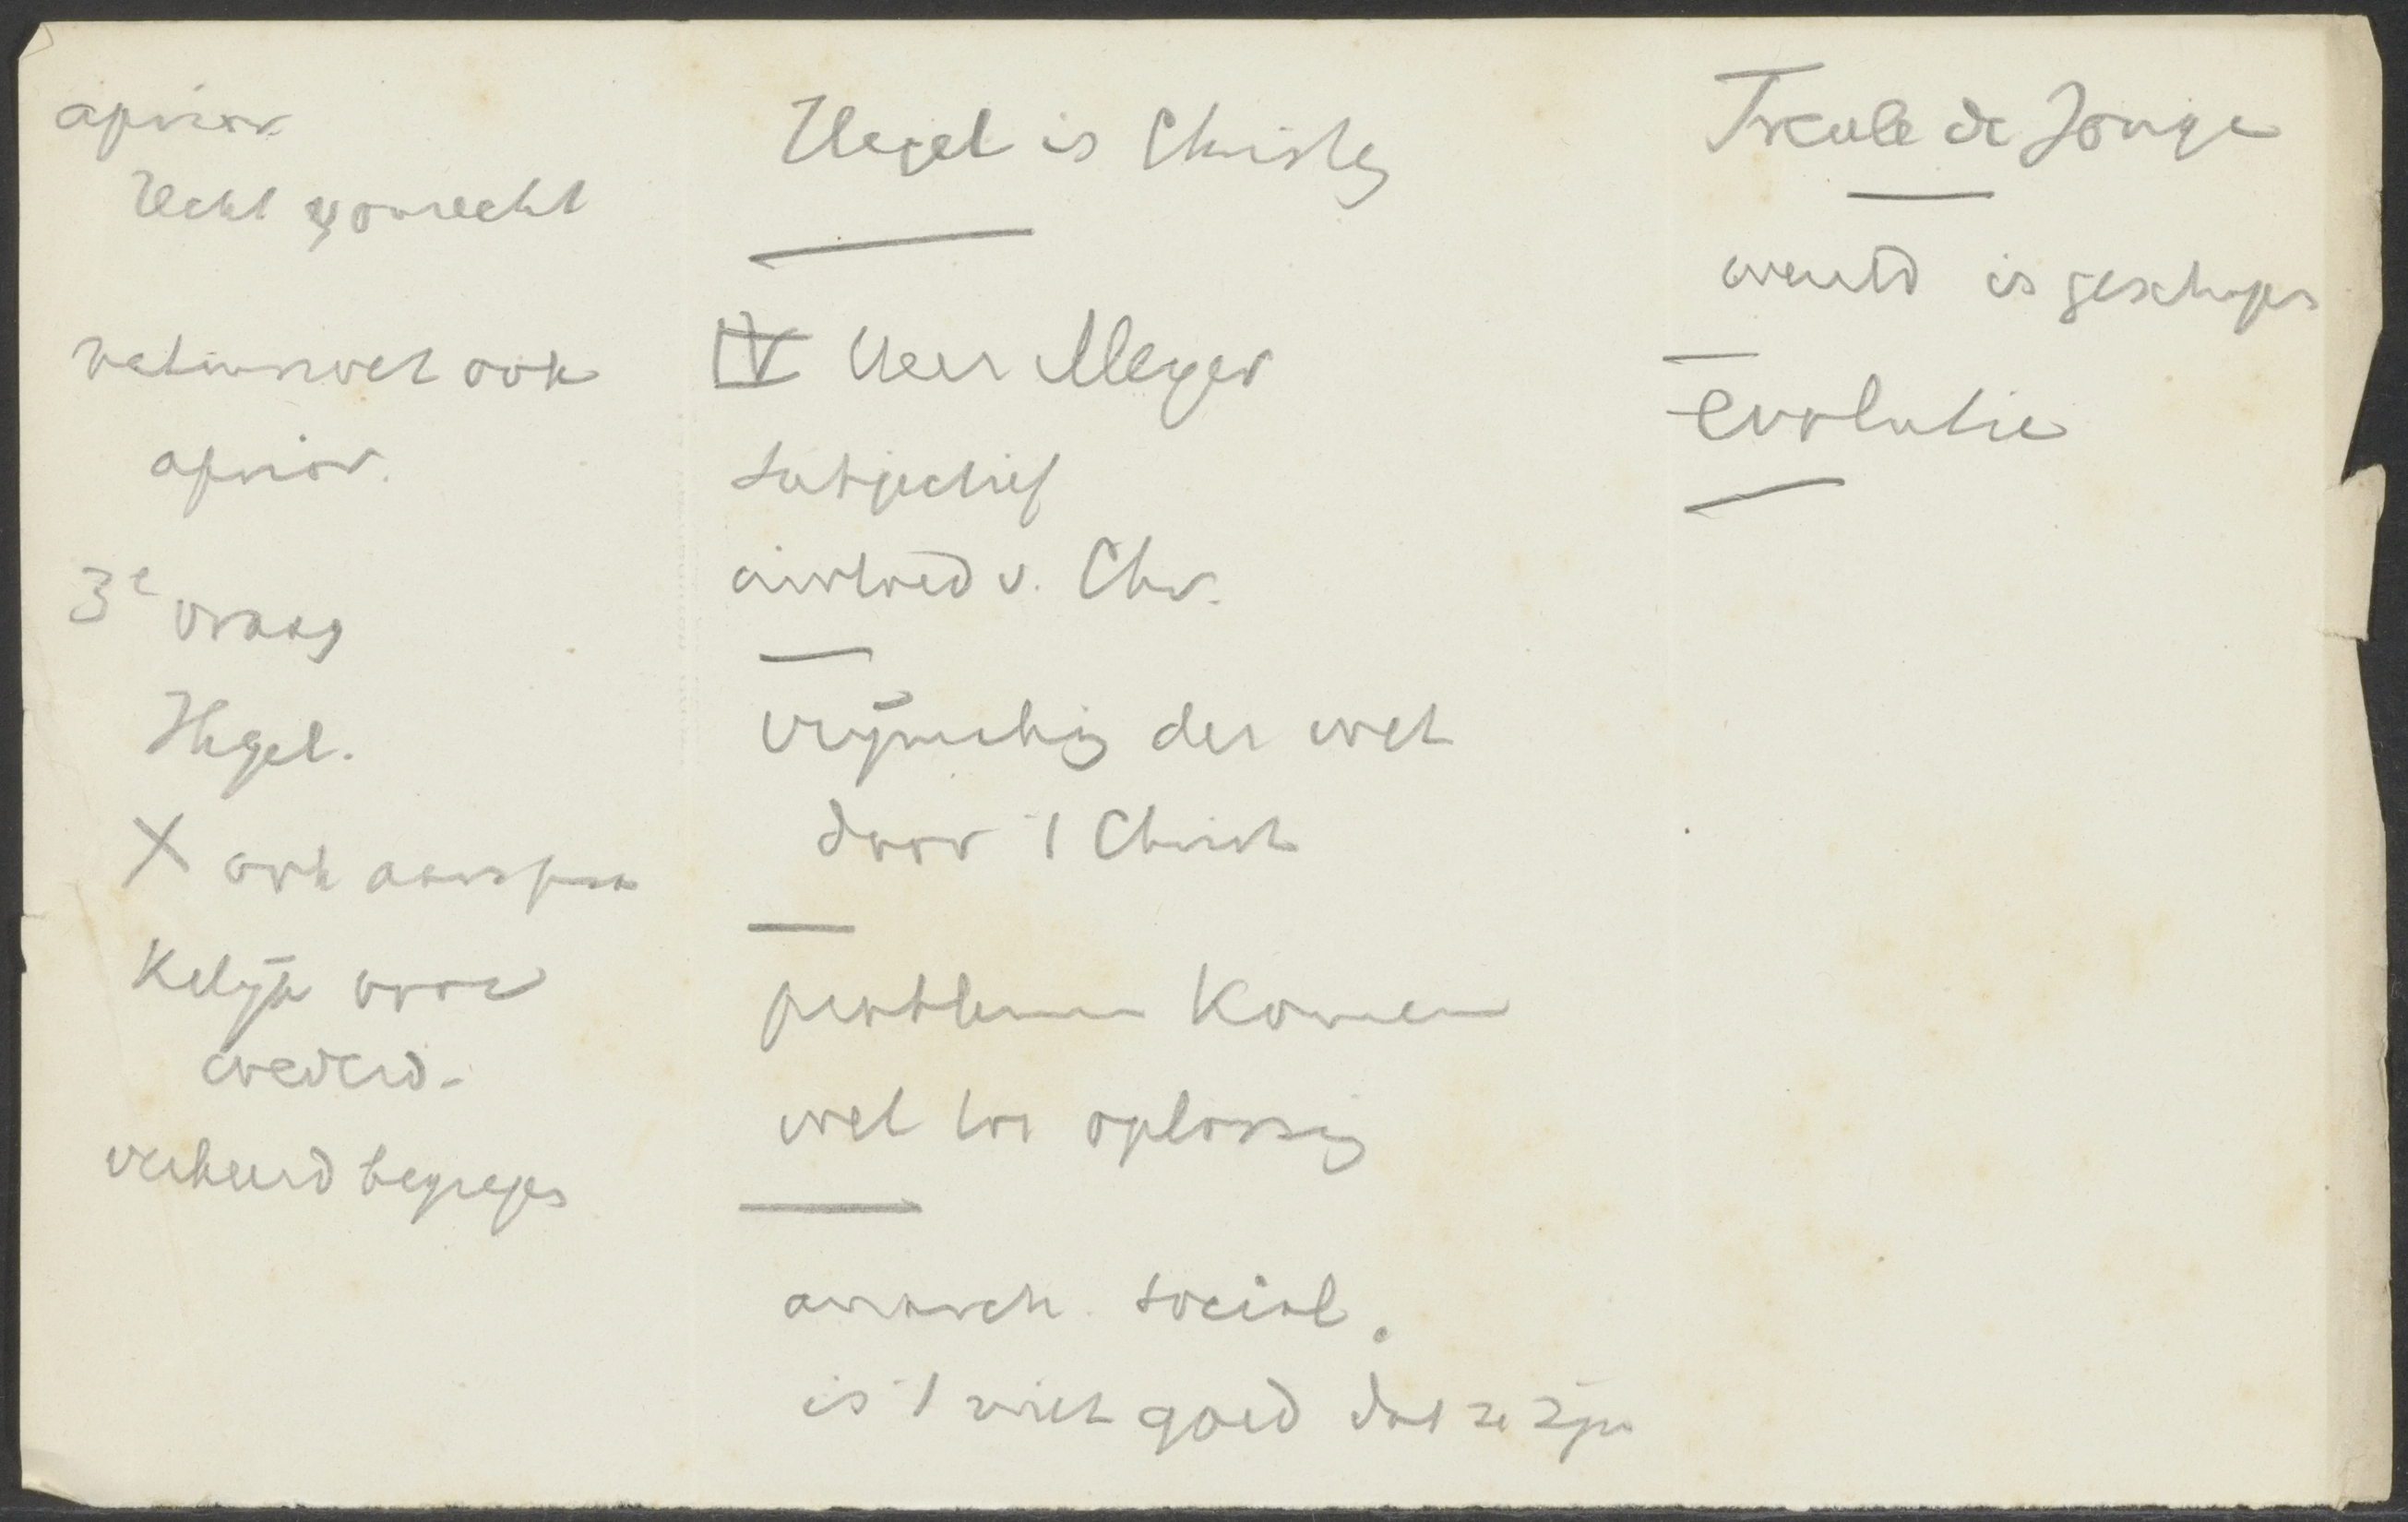 aprior.
Recht & onrecht
natuurwet ook
aprior.
3e vraag
Hegel.
X ook
Kelijk voor
wederd.
verkeerd begrepen
Hegel is Christen
IV Heer Meyer
Subjectief
invloed v. Chr.
vrijmaking der wet
door 't Christ
problemen Komen
wel tot oplossing
anarch. social.
is 't niet goed dat ze zijn
de Jonge
wereld is geschapen
evolutie